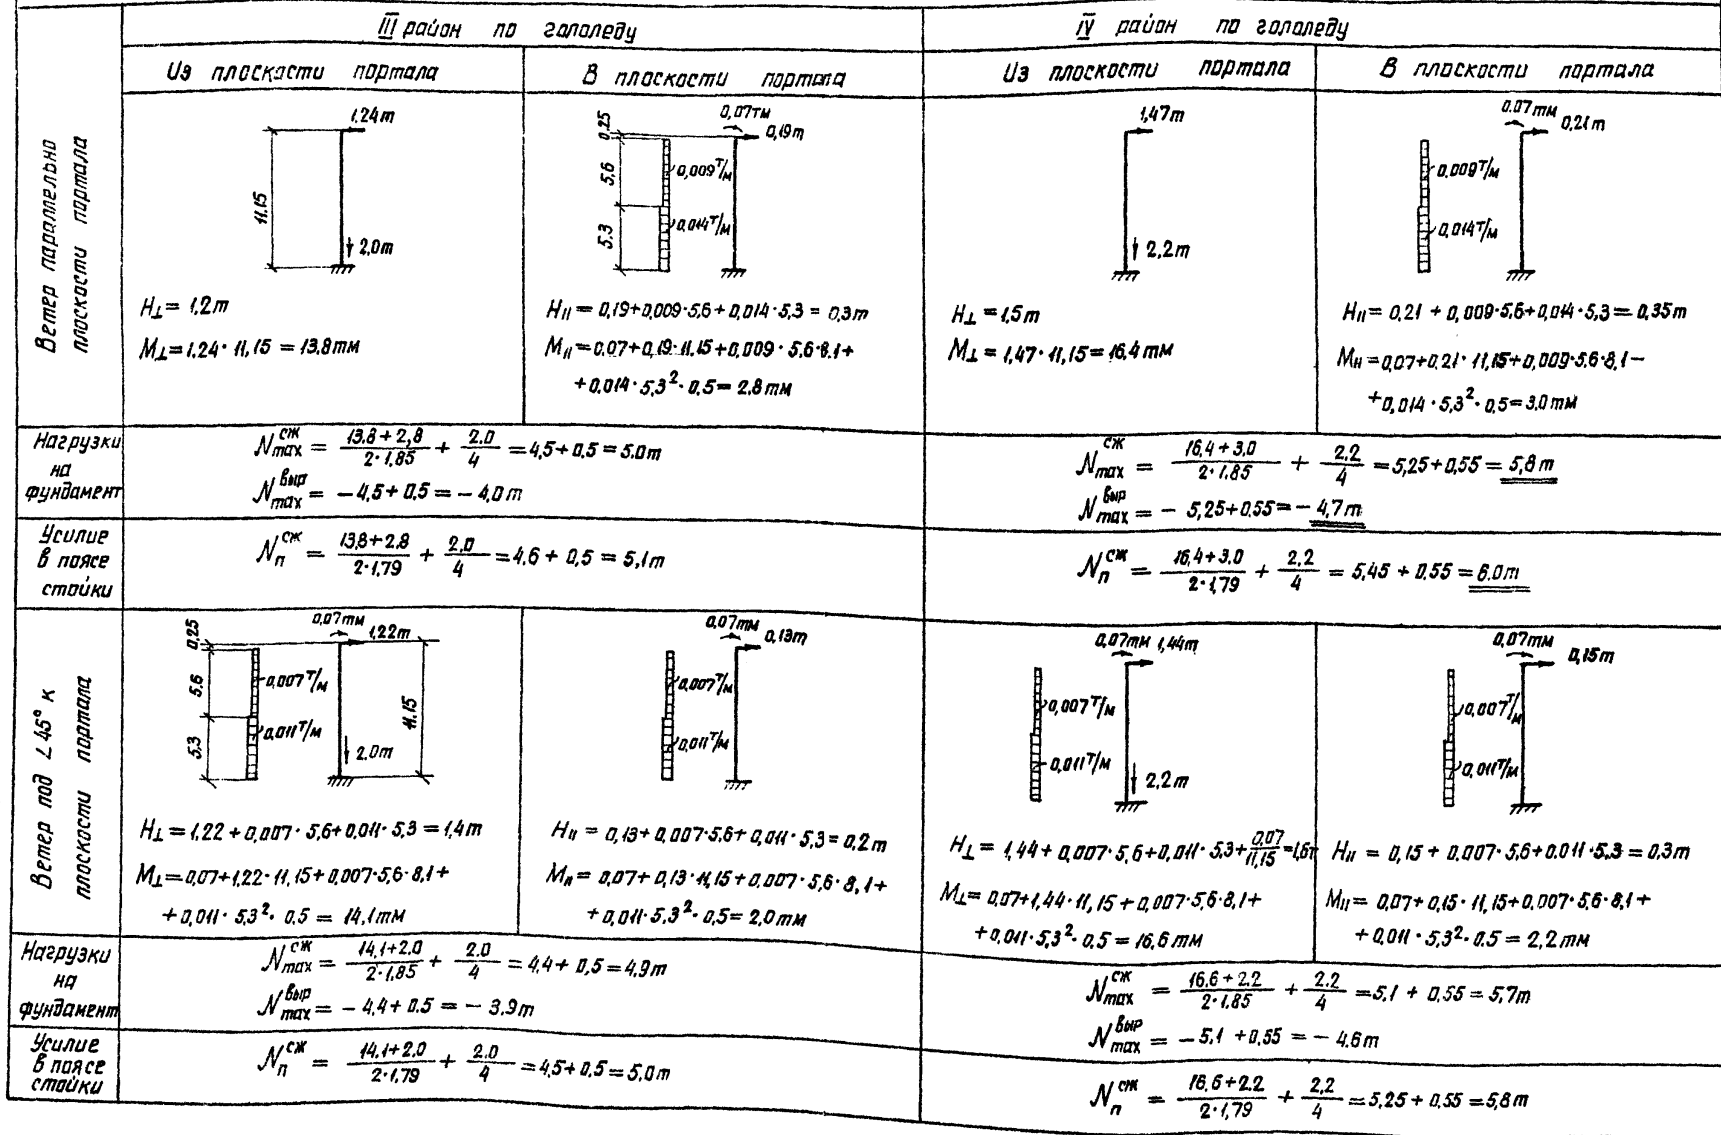 III район по гололеду
IV район по гололеду
Из плоскости портала
В плоскости портала
Из плоскости портала
В плоскости портала
Ветер параллельно
плоскости портала
1.24т
11.15
2,0т
H⊥ = 1,2т
M⊥ = 1.24 · 11,15 = 13.8тм
0,25
5,6
5.3
0,07тм
0,19т
0,009 т/м
0,014 т/м
H॥ = 0,19+0,009·5,6+0,014·5,3 = 0,3т
M॥ = 0.07+0,19·11,15+0,009·5,6·8,1+
+0.014·5,3²·0,5 = 2.8тм
1,47т
2,2т
H⊥ = 1,5т
M⊥ = 1,47·11,15 = 16,4тм
0.07тм
0,21т
0.009 т/м
0,014 т/м
H॥ = 0,21 + 0,009·5,6+0,014·5,3 = 0,35т
M॥ = 0,07+0,21·11,15+0,009·5,6·8,1−
+0,014·5,3²·0,5 = 3.0тм
Нагрузки
на
фундамент
N max сж = (13.8+2,8)/(2·1,85) + 2.0/4 = 4,5+0,5 = 5.0т
N max выр = −4,5+0.5 = −4,0т
N max сж = (16,4+3,0)/(2·1,85) + 2,2/4 = 5,25+0,55 = 5,8т
N max выр = − 5,25+0,55 = − 4,7т
Усилие
в поясе
стойки
N п сж = (13,8+2.8)/(2·1,79) + 2.0/4 = 4,6 + 0,5 = 5,1т
N п сж = (16,4+3,0)/(2·1,79) + 2,2/4 = 5,45 + 0.55 = 6.0т
Ветер под ∠45° к
плоскости портала
0,25
5.6
5,3
0,07тм
1,22т
0,007 т/м
0,011 т/м
11.15
2,0т
H⊥ = 1,22+0,007·5,6+0,011·5,3 = 1,4т
M⊥ = 0,07+1,22·11,15+0,007·5,6·8,1+
+0,011·5,3²·0.5 = 14,1тм
0,07тм
0,13т
0,007 т/м
0,011 т/м
H॥ = 0,13+0,007·5,6+0,011·5,3 = 0,2т
M॥ = 0,07+0,13·11,15+0,007·5,6·8,1+
+0,011·5,3²·0,5 = 2,0тм
0,07тм
1,44т
0,007 т/м
0,011 т/м
2,2т
H⊥ = 1,44+0,007·5,6+0,011·5,3+0,07/11,15 = 1,6т
M⊥ = 0,07+1,44·11,15+0,007·5,6·8,1+
+0,011·5,3²·0,5 = 16,6тм
0,07тм
0,15т
0,007 т/м
0,011 т/м
H॥ = 0,15 + 0.007·5,6+0.011·5.3 = 0,3т
M॥ = 0,07+0,15·11,15+0,007·5,6·8,1+
+0,011·5,3²·0.5 = 2,2тм
Нагрузки
на
фундамент
N max сж = (14,1+2.0)/(2·1,85) + 2.0/4 = 4,4+0,5 = 4,9т
N max выр = −4,4+0.5 = − 3.9т
N max сж = (16,6+2,2)/(2·1,85) + 2.2/4 = 5,1 + 0,55 = 5,7т
N max выр = −5,1 +0,55 = − 4,6т
Усилие
в поясе
стойки
N п сж = (14,1+2,0)/(2·1,79) + 2,0/4 = 4,5+0,5 = 5,0т
N п сж = (16,6+2.2)/(2·1,79) + 2,2/4 = 5,25 + 0,55 = 5,8т